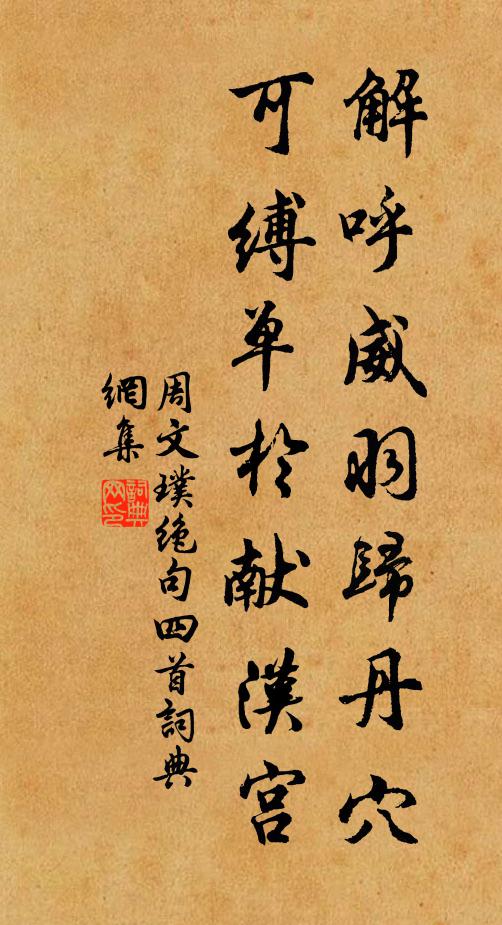 解呼威羽歸丹穴
可縛单於献漢宮
周文璞绝句四首詞典
網集
詞典
网印